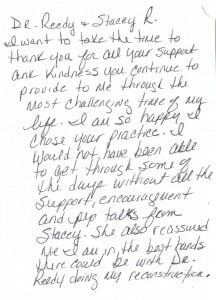 Dr. Reedy & Stacey R.
I want to take the time to
thank you for all your support
and kindness you continue to
provide to me through the
most challenging time of my
life. I am so happy I
chose your practice. I
would not have been able
to get through some of
the days without all the
support, encouragement
and pep talks from
Stacey. She also reassured
me I am in the best hands
there could be with Dr.
Reedy doing my reconstruction.